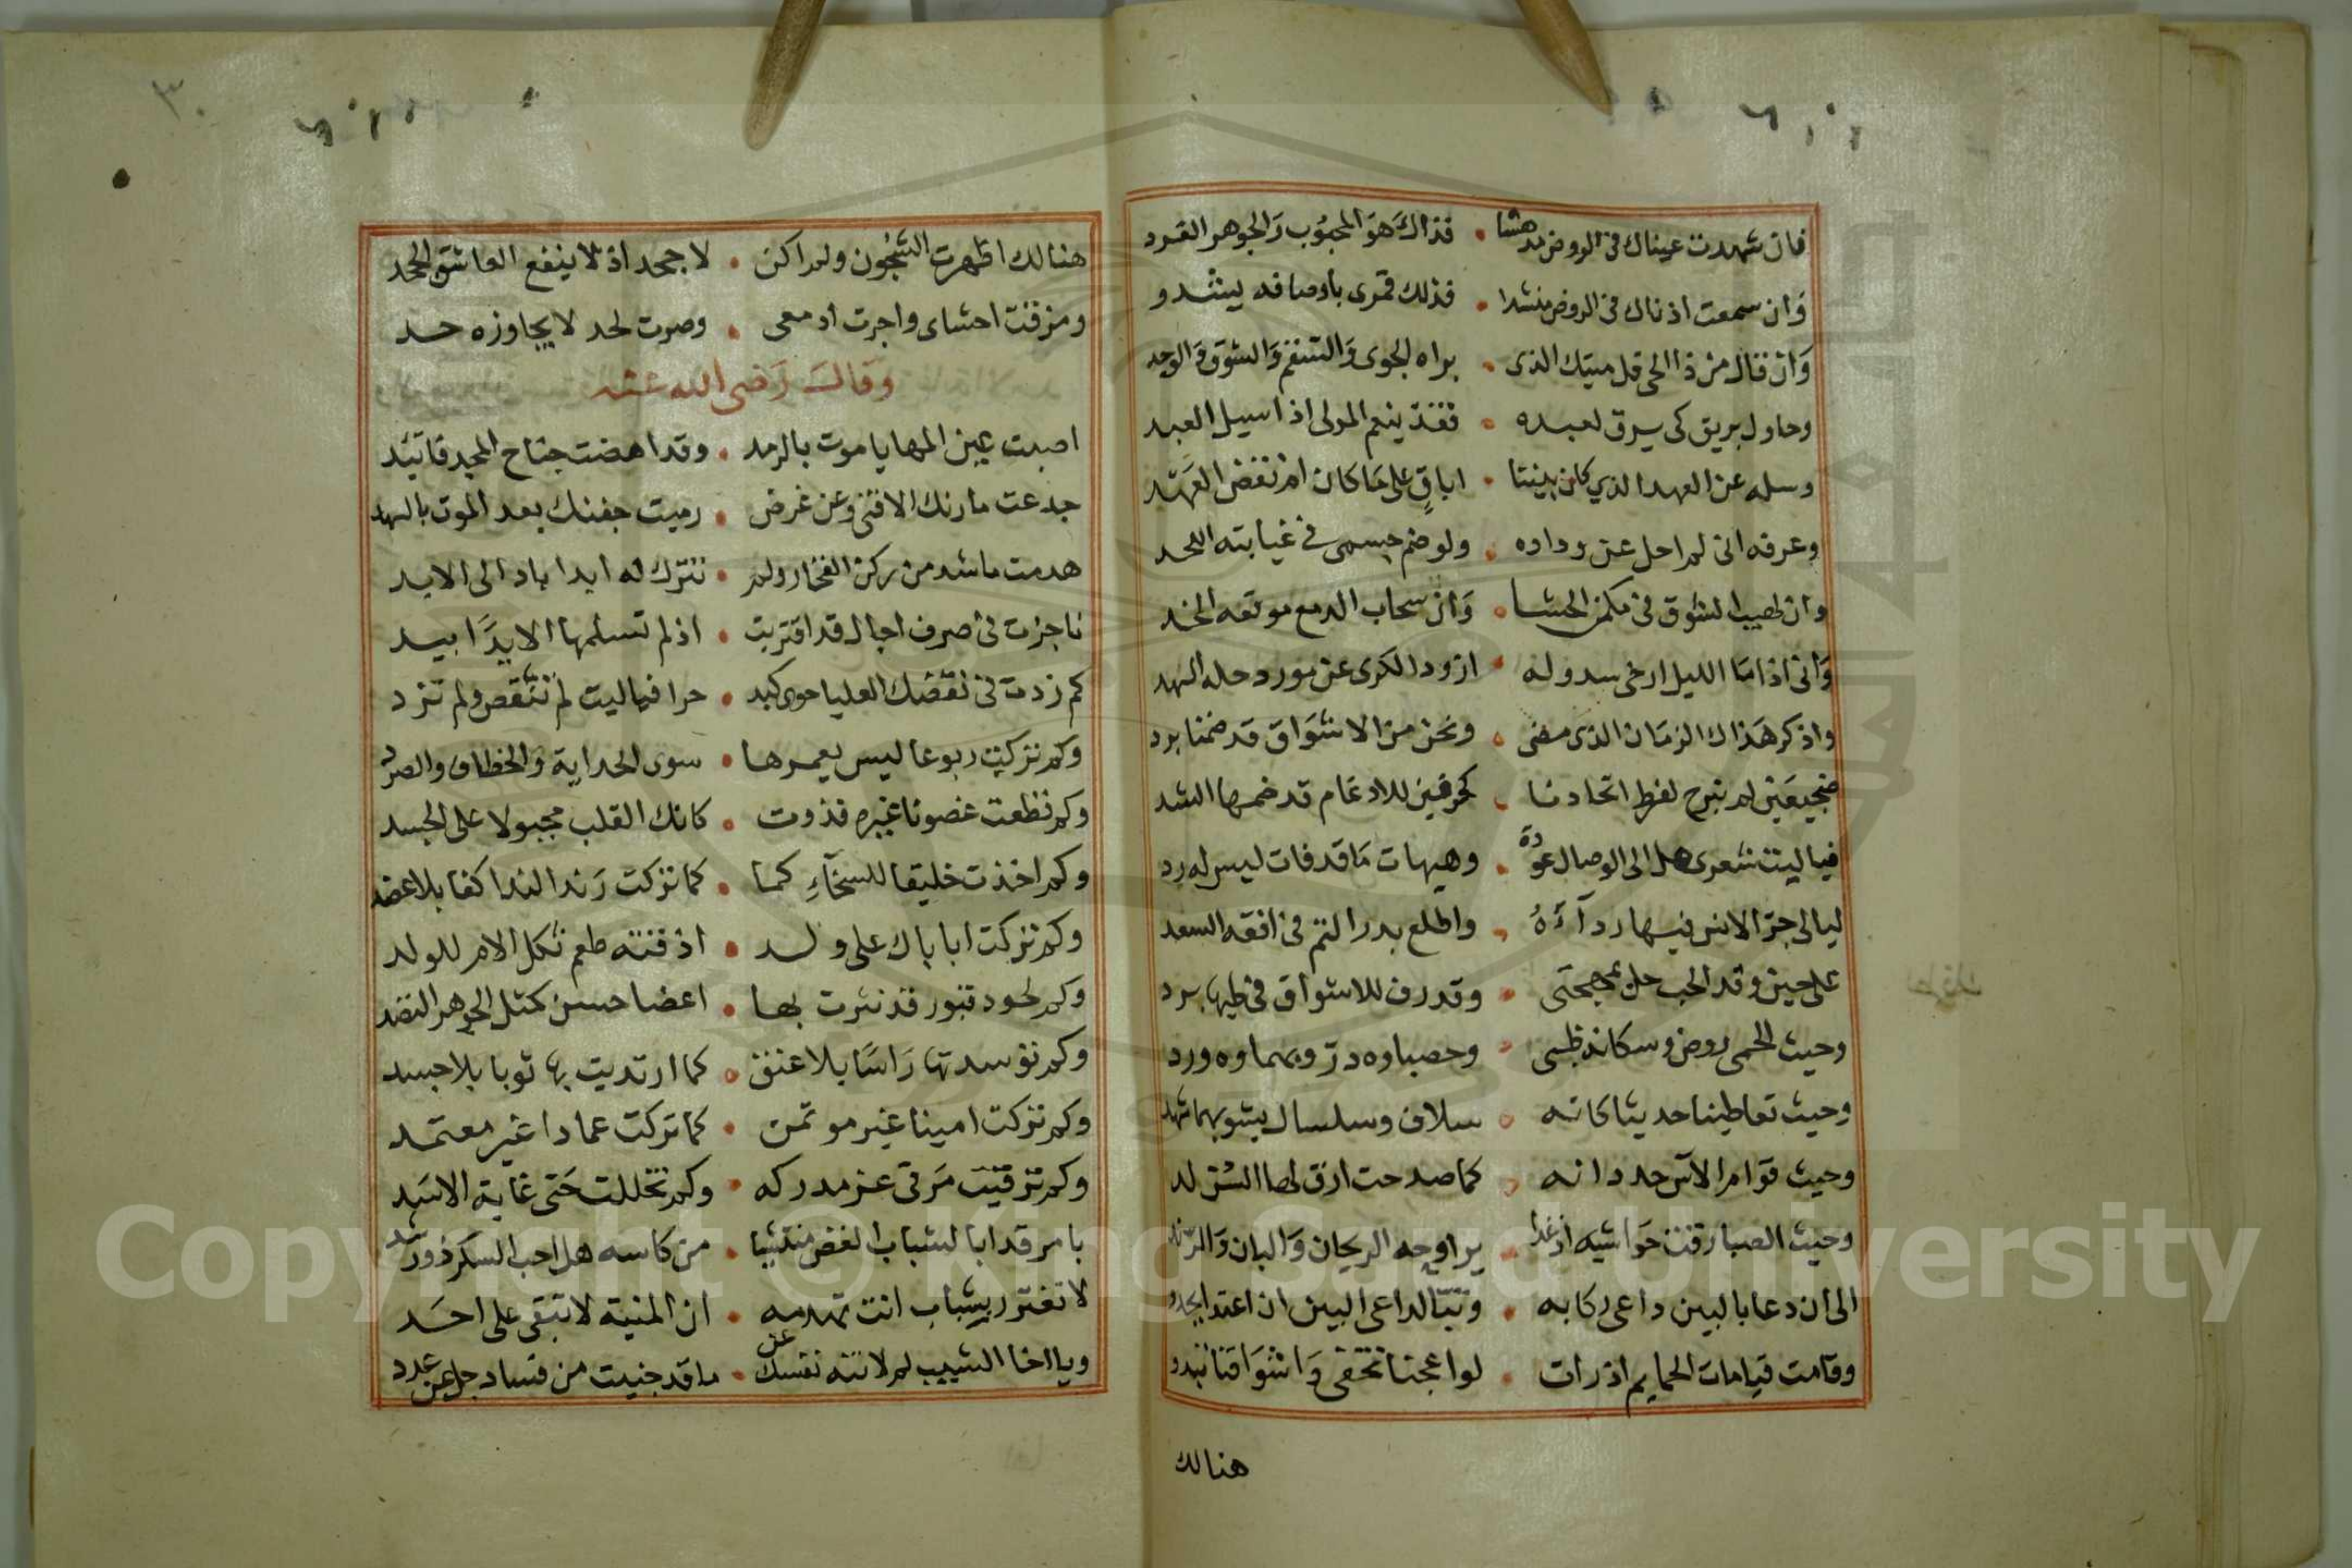 فان شهدت عيناك فى الروض مدهشا • فذاك هو المحبوب والجوهر الفرد
وان سمعت اذناك فى الروض منشدا • فذلك قمرى باوصافه يشدو
وان قال من ذا الحى قل ميتك الذى • براه الجوى والتشغف والشوق والوجد
وحاول بريق كى يرق لعبده • فقد ينعم المولى اذا سيل العبد
وسله عن العهد الذي كان بيننا • اباق على ما كان ام نقض العهد
وعرفه انى لم احل عن وداده • ولو ضم جسمى فى غيابته اللحد
وان لهيب الشوق فى مكمن الحشا • وان سحاب الدمع موقعه الخد
وانى اذا ما الليل ارخى سدوله • ازود الكرى عن مورد حله السهد
واذكر هذاك الزمان الذى مضى • ونحن من الاشواق قد ضمنا برد
ضجيعين لم نبرح لفرط اتحادنا • كحرفين للادغام قد ضمها الشد
فياليت شعرى هل الى الوصال عودة • وهيهات ما قد فات ليس له رد
ليالى جر الانس فيها رداءه • واطلع بدر التم فى افقه السعد
على حين وقد الحب حل بمهجتى • وقد رف للاشواق فى طيها برد
وحيث الحمى روض وسكانه ظبى • وحصباوه در وسماوه ورد
وحيث تعاطينا حديثا كانه • سلاف وسلسال يشوبهما شهد
وحيث قوام الآس حد دانه • كما صدحت ارق لها السن لد
وحيث الصبا رقت حواشيه اذ غدا • يراوحه الريحان والبان والرند
الى ان دعا بالبين داعى ركابه • وتبا لداعى البين ان اعتد الجد
وقامت قيامات الحمايم اذ رات • لواعجنا تخفى واشواقنا تبدو
هنالك
هنالك اظهرت الشجون ولم اكن • لاجحد اذ لا ينفع العاشق الجحد
ومزقت احشاى واجرت ادمعى • وصرت لحد لا يجاوزه حد
وقال رضى الله عنه
اصبت عين المها يا موت بالرمد • وقد اهضت جناح المجد فاتيد
جدعت مارنك الاقنى وعن غرض • رميت جفنك بعد الموت بالسهد
هدمت ما شد من ركن الفخار ولم • تترك له ابدا باد الى الابد
ناجزت فى صرف اجال قد اقتربت • اذ لم تسلمها الا يدا بيد
كم زدت فى نقضك العليا حوى كبد • حرا فياليت لم تنقص ولم تزد
وكم تركت ربوعا ليس يعمرها • سوى الحداية والخطاف والصرد
وكم قطعت غصونا غيره فذوت • كانك القلب مجبولا على الجسد
وكم اخذت خليقا للسخاء كما • كما تركت زند الندا كفا بلا عضد
وكم تركت ابا باك على ولد • اذقته طعم ثكل الام للولد
وكم لحود قبور قد نثرت بها • اعضا حسن كمثل الجوهر النضد
وكم توسدتها راسا بلا عنق • كما ارتديت بها ثوبا بلا جسد
وكم تركت امينا غير موتمن • كما تركت عمادا غير معتمد
وكم ترقيت مرقى عز مدركه • وكم تخللت حتى غابة الاسد
يا مرقدا با لشباب الغض منتشيا • من كاسه هل احب السكر ذو رشد
لا تغترر بشباب انت تهدمه • ان المنية لا تبقى على احد
ويا اخا الشيب لم لا تنه نفسك عن • ما قد جنيت من فساد جل عن عدد